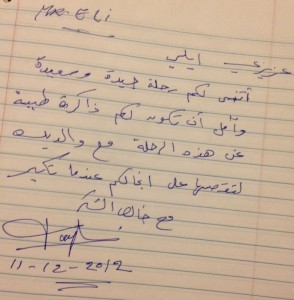 MR. ELI
عزيزي ايلي
أتمنى لكم رحلة جيدة وسعيدة
وآمل أن تكون لكم ذاكرة طيبة
عن هذه الرحلة مع والديك
لتقصها على اطفالكم عندما تكبر
مع خالص الشكر
11-12-2012